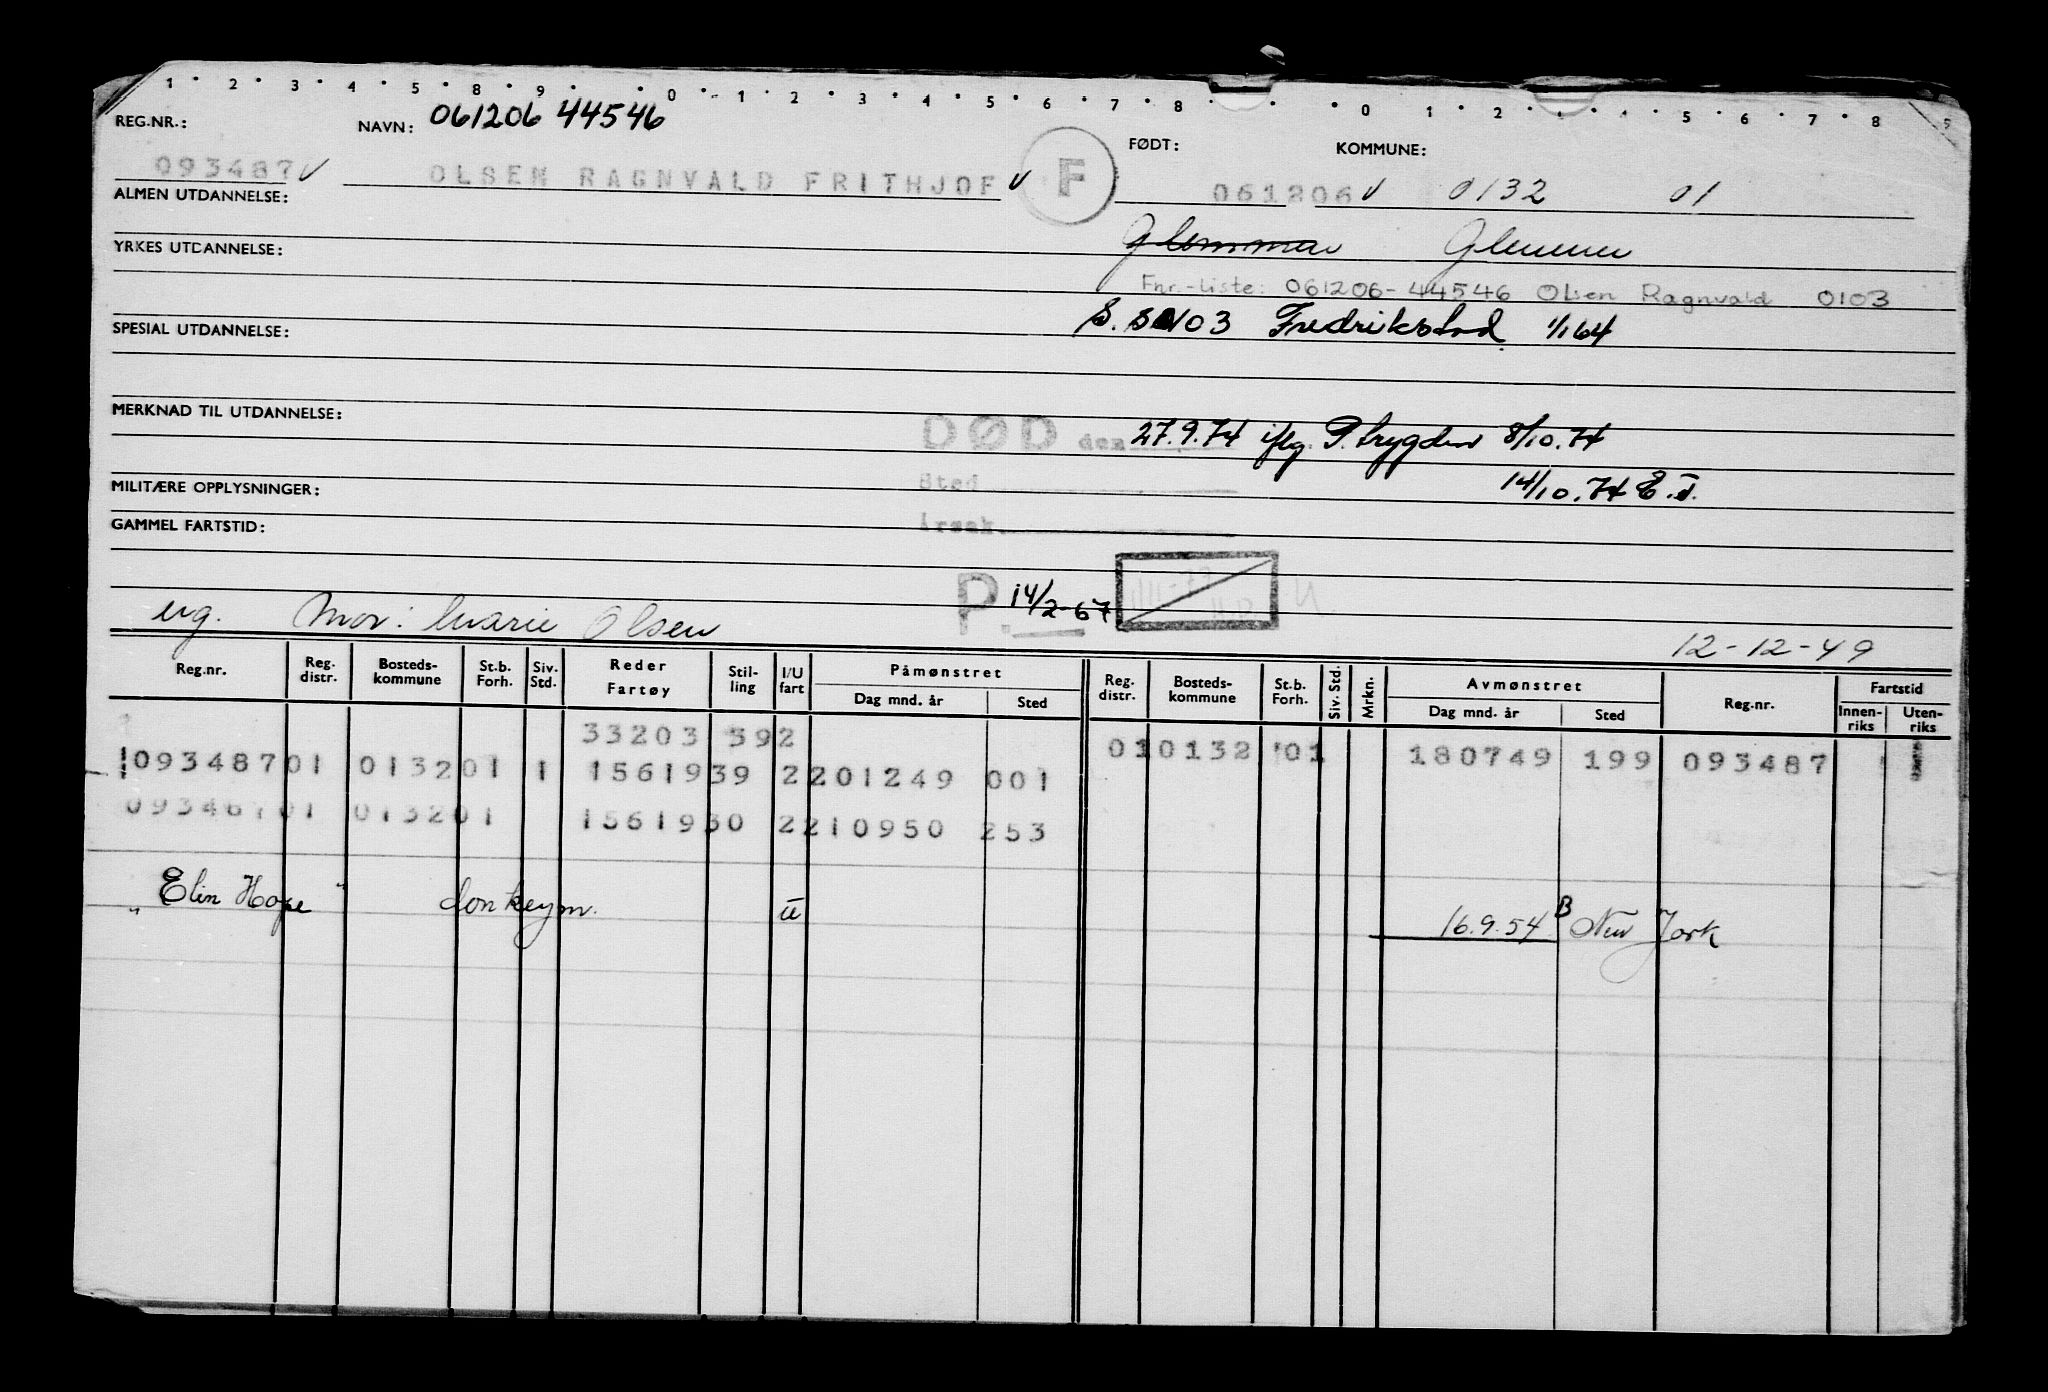 1 · 2 · 3 · 4 · 5 · 8 · 9 · · 0 · 1 · 2 · 3 · 4 · 5 · 6 · 7 · 8 · · · 0 · 1 · 2 · · · 5 · 6 · 7 · 8 · 9
REG.NR.: NAVN: 061206 44546 FØDT: KOMMUNE:
093487 V OLSEN RAGNVALD FRITHJOF V F 061206 V 0132 01
ALMEN UTDANNELSE:
Glemmen
YRKES UTDANNELSE:
Fnr.-liste: 061206-44546 Olsen Ragnvald 0103
0103 Fredrikstad 1/1 64
SPESIAL UTDANNELSE:
MERKNAD TIL UTDANNELSE:
DØD den 27.9.74 iflg. P. trygden 8/10.74
Sted 14/10.74
MILITÆRE OPPLYSNINGER:
GAMMEL FARTSTID:
Årsak.
P. 14/2-67
ug. Mor: Marie Olsen 12-12-49
Reg.nr. Reg. distr. Bosteds-kommune St.b. Forh. Siv. Std. Reder Fartøy Stil-ling I/U fart Påmønstret Dag mnd. år Sted Reg. distr. Bosteds-kommune St.b. Forh. Siv. Std. Mrkn. Avmønstret Dag mnd. år Sted Reg.nr. Fartstid Innen-riks Uten-riks
33203 392 010132 01 180749 199 093487
093487 01 0132 01 1 15619 39 2 201249 001
093487 01 0132 01 15619 30 2 210950 253
"Elin Hope" donkeym. U 16.9.54 B New York